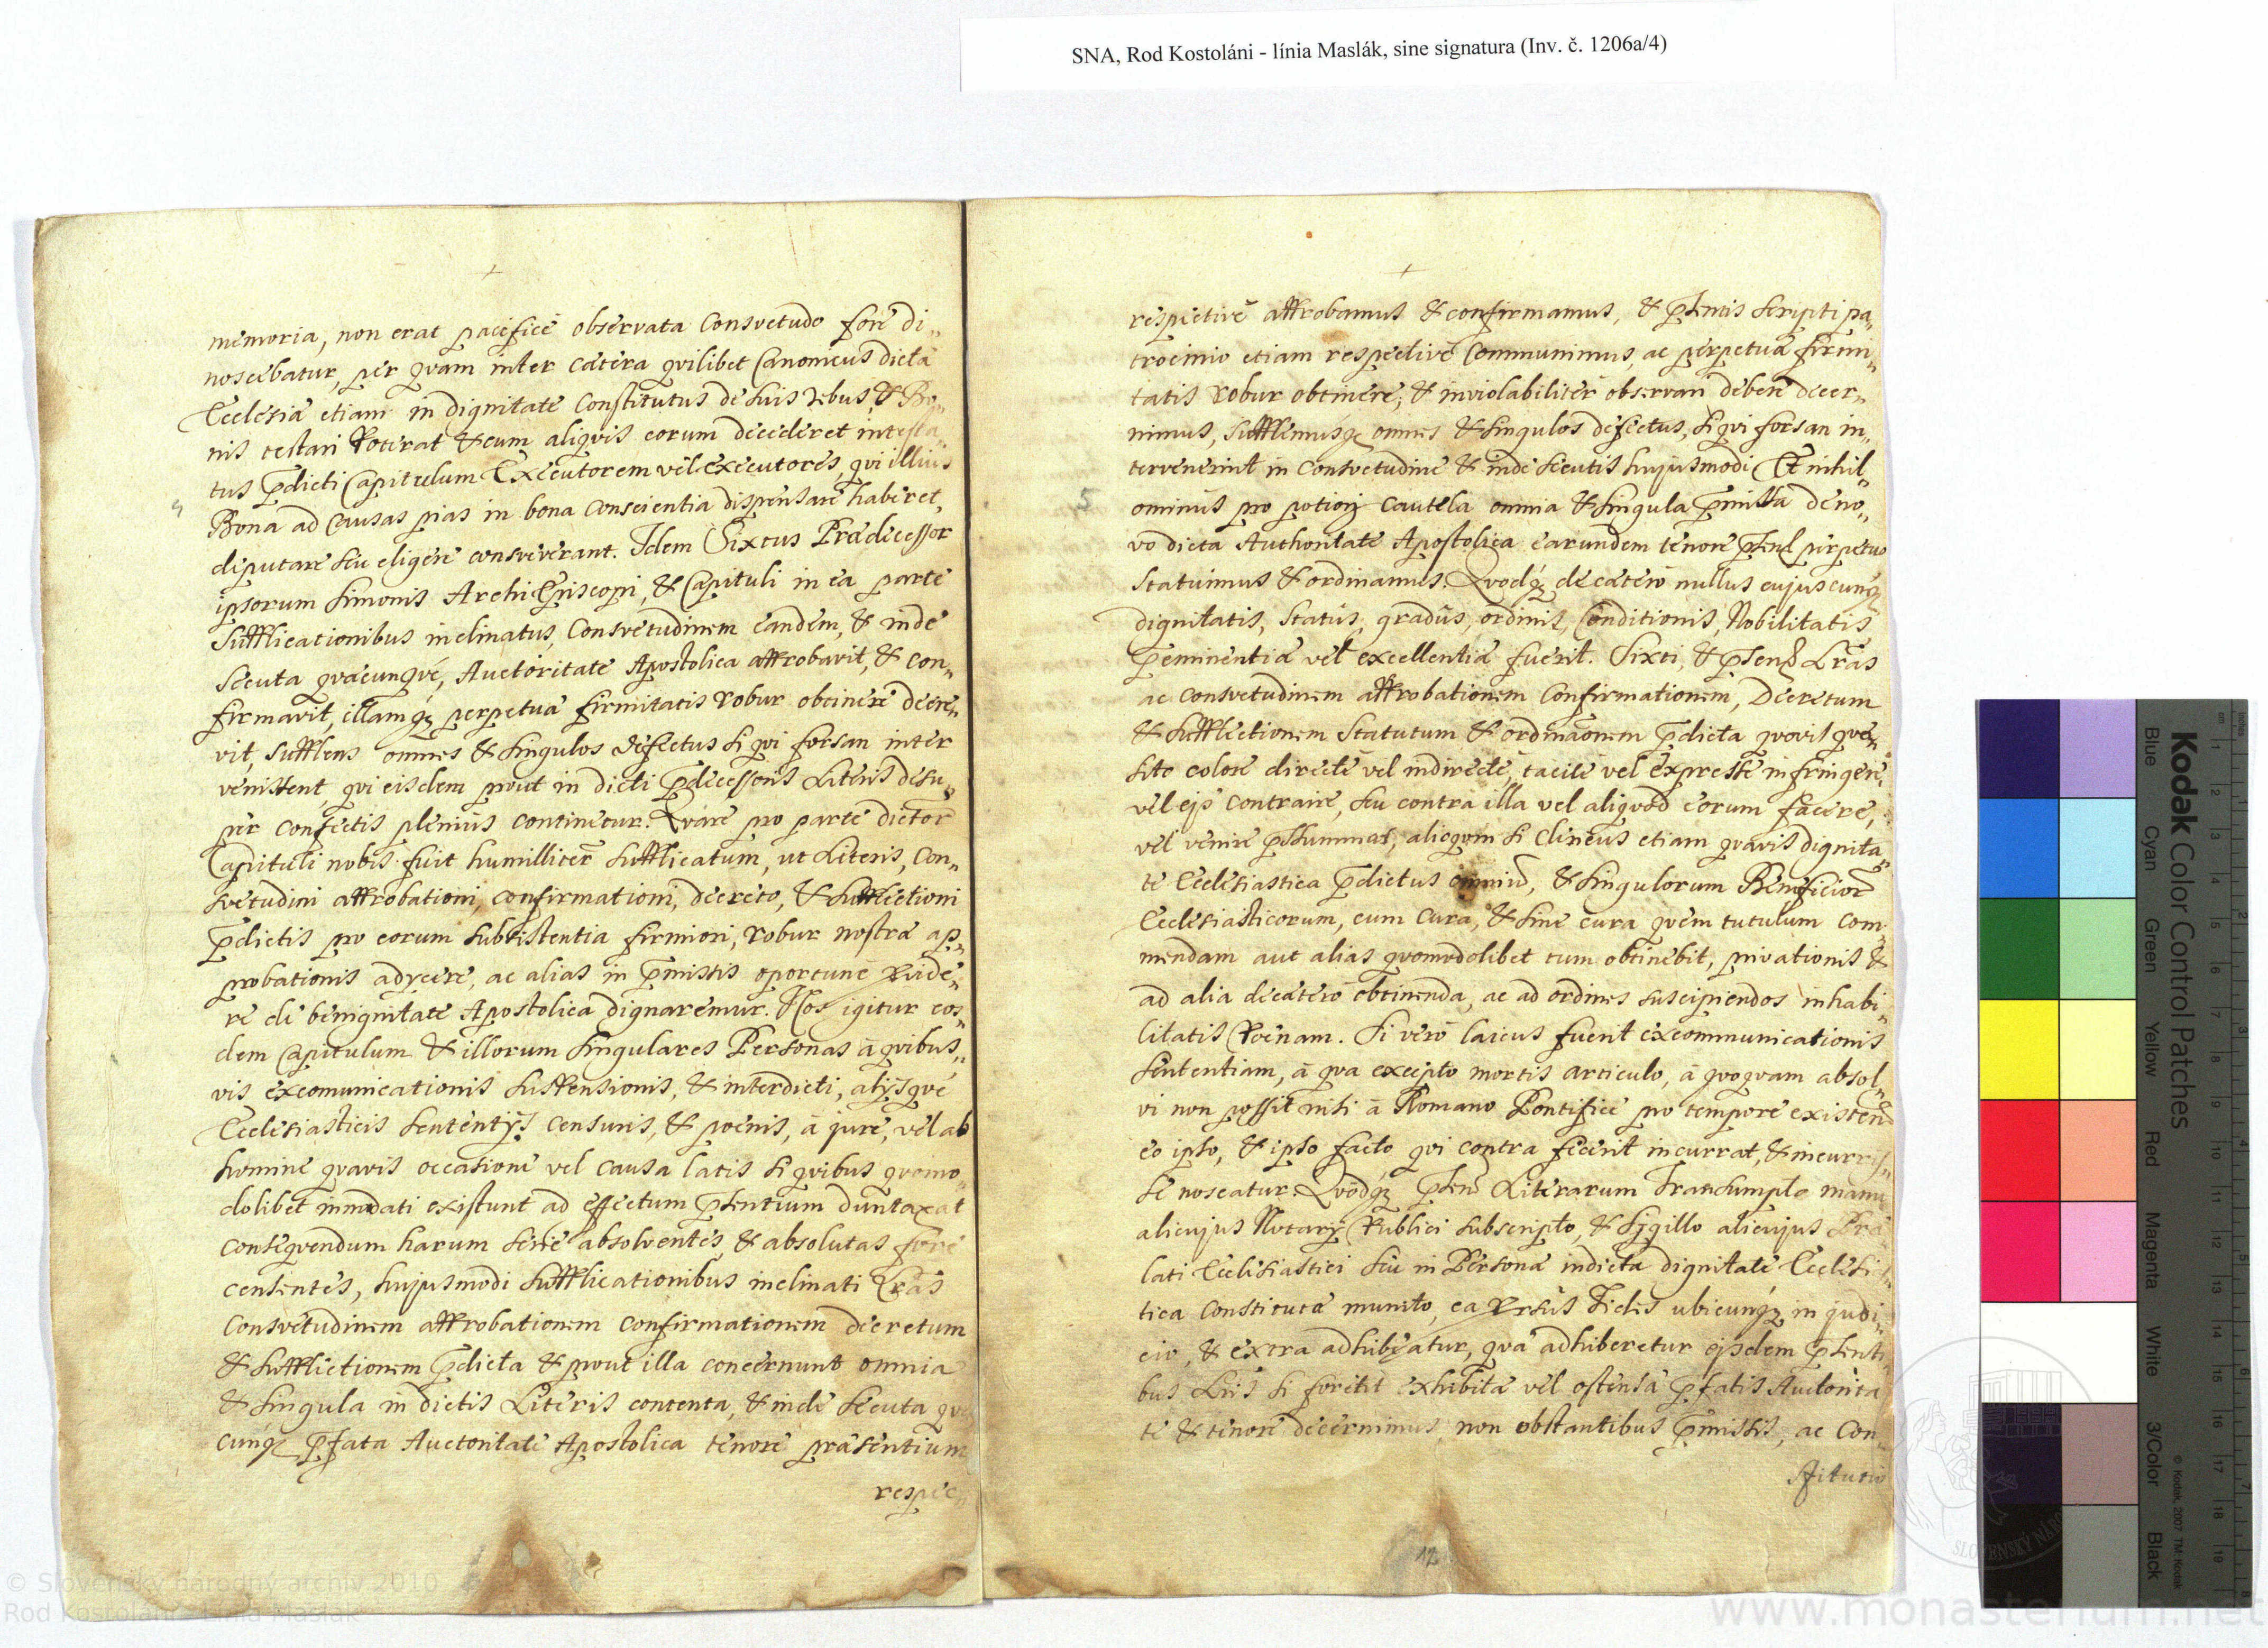 SNA, Rod Kostoláni - línia Maslák, sine signatura (Inv. č. 1206a/4)
memoria, non erat pacificè observata Consvetudo fore di„
noscebatur, per qvam inter cætera qvilibet Canonicus dictæ
Ecclesiæ etiam in dignitate Constitutus de suis rebus, & Bo„
nis testari Poterat & cum aliqvis eorum decederet intesta„
tus p̄dicti Capitulum Executorem vel executores, qvi illius
Bona ad Causas pias in bona Conscientia dispensare haberet,
deputare seu eligere consveverant. Idem Sixtus Prædecessor
ipsorum Simonis Archi Episcopi, & Capituli in ea parte
Supplicationibus inclinatus, Consvetudinem eandem, & inde
Secuta qvæcunqve, Auctoritate Apostolica approbavit, & con„
firmavit, illamq; perpetuæ firmitatis robur obtinere decre„
vit, Supplens omnes & Singulos defectus si qvi forsan inter
venissent, qvi eisdem prout in dicti p̄decessoris Literis desu„
per confectis pleniùs continetur. Qvare pro parte dictor
Capituli nobis fuit humilliter Supplicatum, ut Literis, Con„
svetudini approbationi, confirmationi, decreto, & Suppletioni
p̄dictis pro eorum Subsistentia firmiori, robur nostræ ap„
probationis adycere, ac alias in p̄missis oportunè
re de benignitate Apostolica dignaremur. Nos igitur eos„
dem Capitulum & illorum Singulares Personas à qvibus„
vis excomunicationis Suspensionis, & interdicti, alijsqve
Ecclesiasticis Sententijs Censuris, & poenis, à jure, vel ab
homine qvavis occasione vel causa latis si qvibus qvomo„
dolibet innodati existunt ad effectum p̄sentium duntaxat
Conseqvendum harum serie absolventes, & absolutas fore
censentes, hujusmodi Supplicationibus inclinati Lr̄as
Consvetudinem approbationem confirmationem decretum
& Suppletionem p̄dicta & prout illa concernunt omnia
& Singula in dictis Literis contenta, & inde Secuta qvæ
cunq; p̄fata Auctoritate Apostolica tenore præsentium
respec„
5
respective approbamus & confirmamus, & p̄sentis Scripti pa„
trocinio etiam respective Communimus, ac perpetuæ firmi„
tatis robur obtinere, & inviolabiliter observari debere decer„
nimus, Supplemusq; omnes & Singulos defectus, Si qvi forsan in„
tervenerint in Consvetudine & inde Secutis hujusmodi Et nihil„
ominùs pro potiori Cautela omnia & Singula p̄missa deno„
vo dicta Authoritate Apostolica earundem tenore p̄sent perpetuo
Statuimus & ordinamus. Qvodq; de cætero nullus cujuscunq;
dignitatis, Statûs, gradûs, ordinis, Conditionis, Nobilitatis
p̄eminentiæ vel excellentiæ fuerit. Sixti, & p̄sent Lr̄as
ac Consvetudinem approbationem Confirmationem, Decretum
& Suppletionem Statutum & ordinãonem p̄dicta qvovis qvæ„
sito colore directè vel indirectè, tacitè vel expresse infringere
vel ejs contraire, seu contra illa vel aliqvod eorum facere,
vel venire p̄Summat, alioqvin si Clericus etiam qvavis dignita„
te Ecclesiastica p̄dictus omniũ, & Singulorum Beneficior
Ecclesiasticorum, cum Cura, & sine cura qvem tutulum com„
mendam aut alias qvomodolibet tum obtinebit, privationis &
ad alia de cætero obtinenda, ac ad ordines suscipiendos inhabi„
litatis Poenam. Si verò laicus fuerit excommunicationis
Sententiam, à qva excepto mortis articulo, à qvoqvam absol„
vi non possit nisi à Romano Pontifice pro tempore existen
eo ipso, & ipso facto qvi contra fecerit incurrat, & incurris„
se noscatur. Qvodq; p̄sen Literarum Transumpto manu
alicujus Notarij Publici subscripto, & Sigillo alicujus Præ
lati Ecclesiastici seu in Persona in dicta dignitate Ecclesi„
tica Constitutæ munito, ea Fides ubicunq; in judi„
cio, & extra adhibeatur, qvæ adhiberetur ejsdem p̄senti
bus Lris si foret exhibitæ vel ostensæ p̄fatis Auctorita
te & tenore decernimus, non obstantibus p̄missis, ac Con„
stitutio
12
© Slovenský národný archív 2010
Rod Kostoláni - línia Maslák
www.monasterium.net
Kodak Color Control Patches
Blue Cyan Green Yellow Red Magenta White 3/Color Black
© Kodak, 2007 TM: Kodak